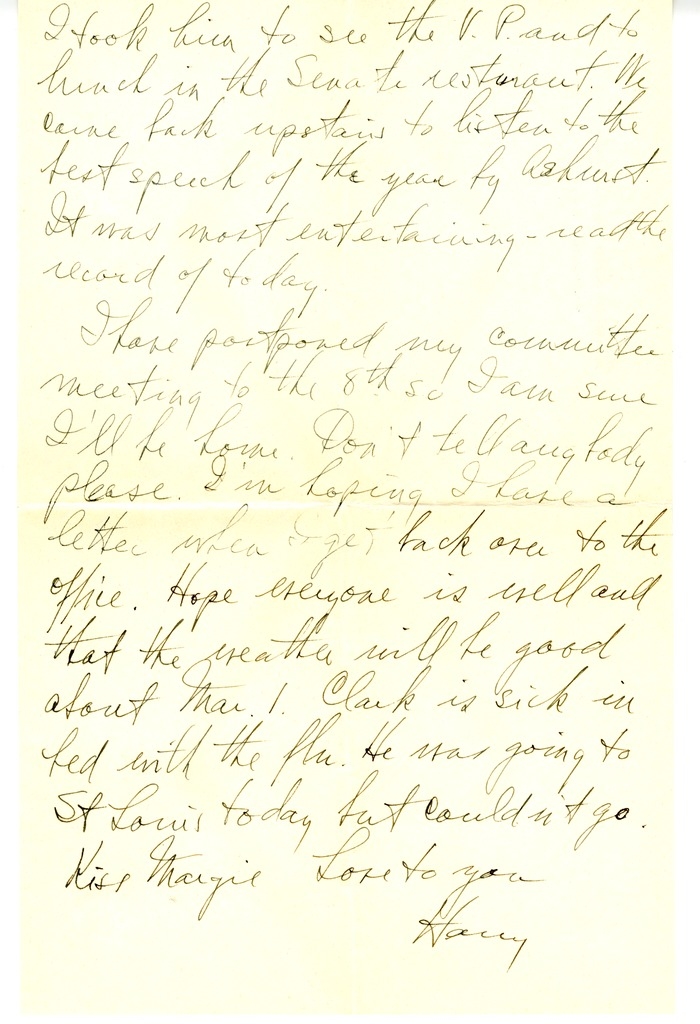 I took him to see the V.P. and to
lunch in the Senate resturant. We
came back upstairs to listen to the
best speech of the year by Ashurst.
It was most entertaining - read the
record of today.
I have postponed my committee
meeting to the 8th so I am sure
I'll be home. Don't tell anybody
please. I'm hoping I have a
letter when I get back over to the
office. Hope everyone is well and
that the weather will be good
about Mar. 1. Clark is sick in
bed with the flu. He was going to
St Louis today but couldn't go.
Kiss Margie Love to you
Harry